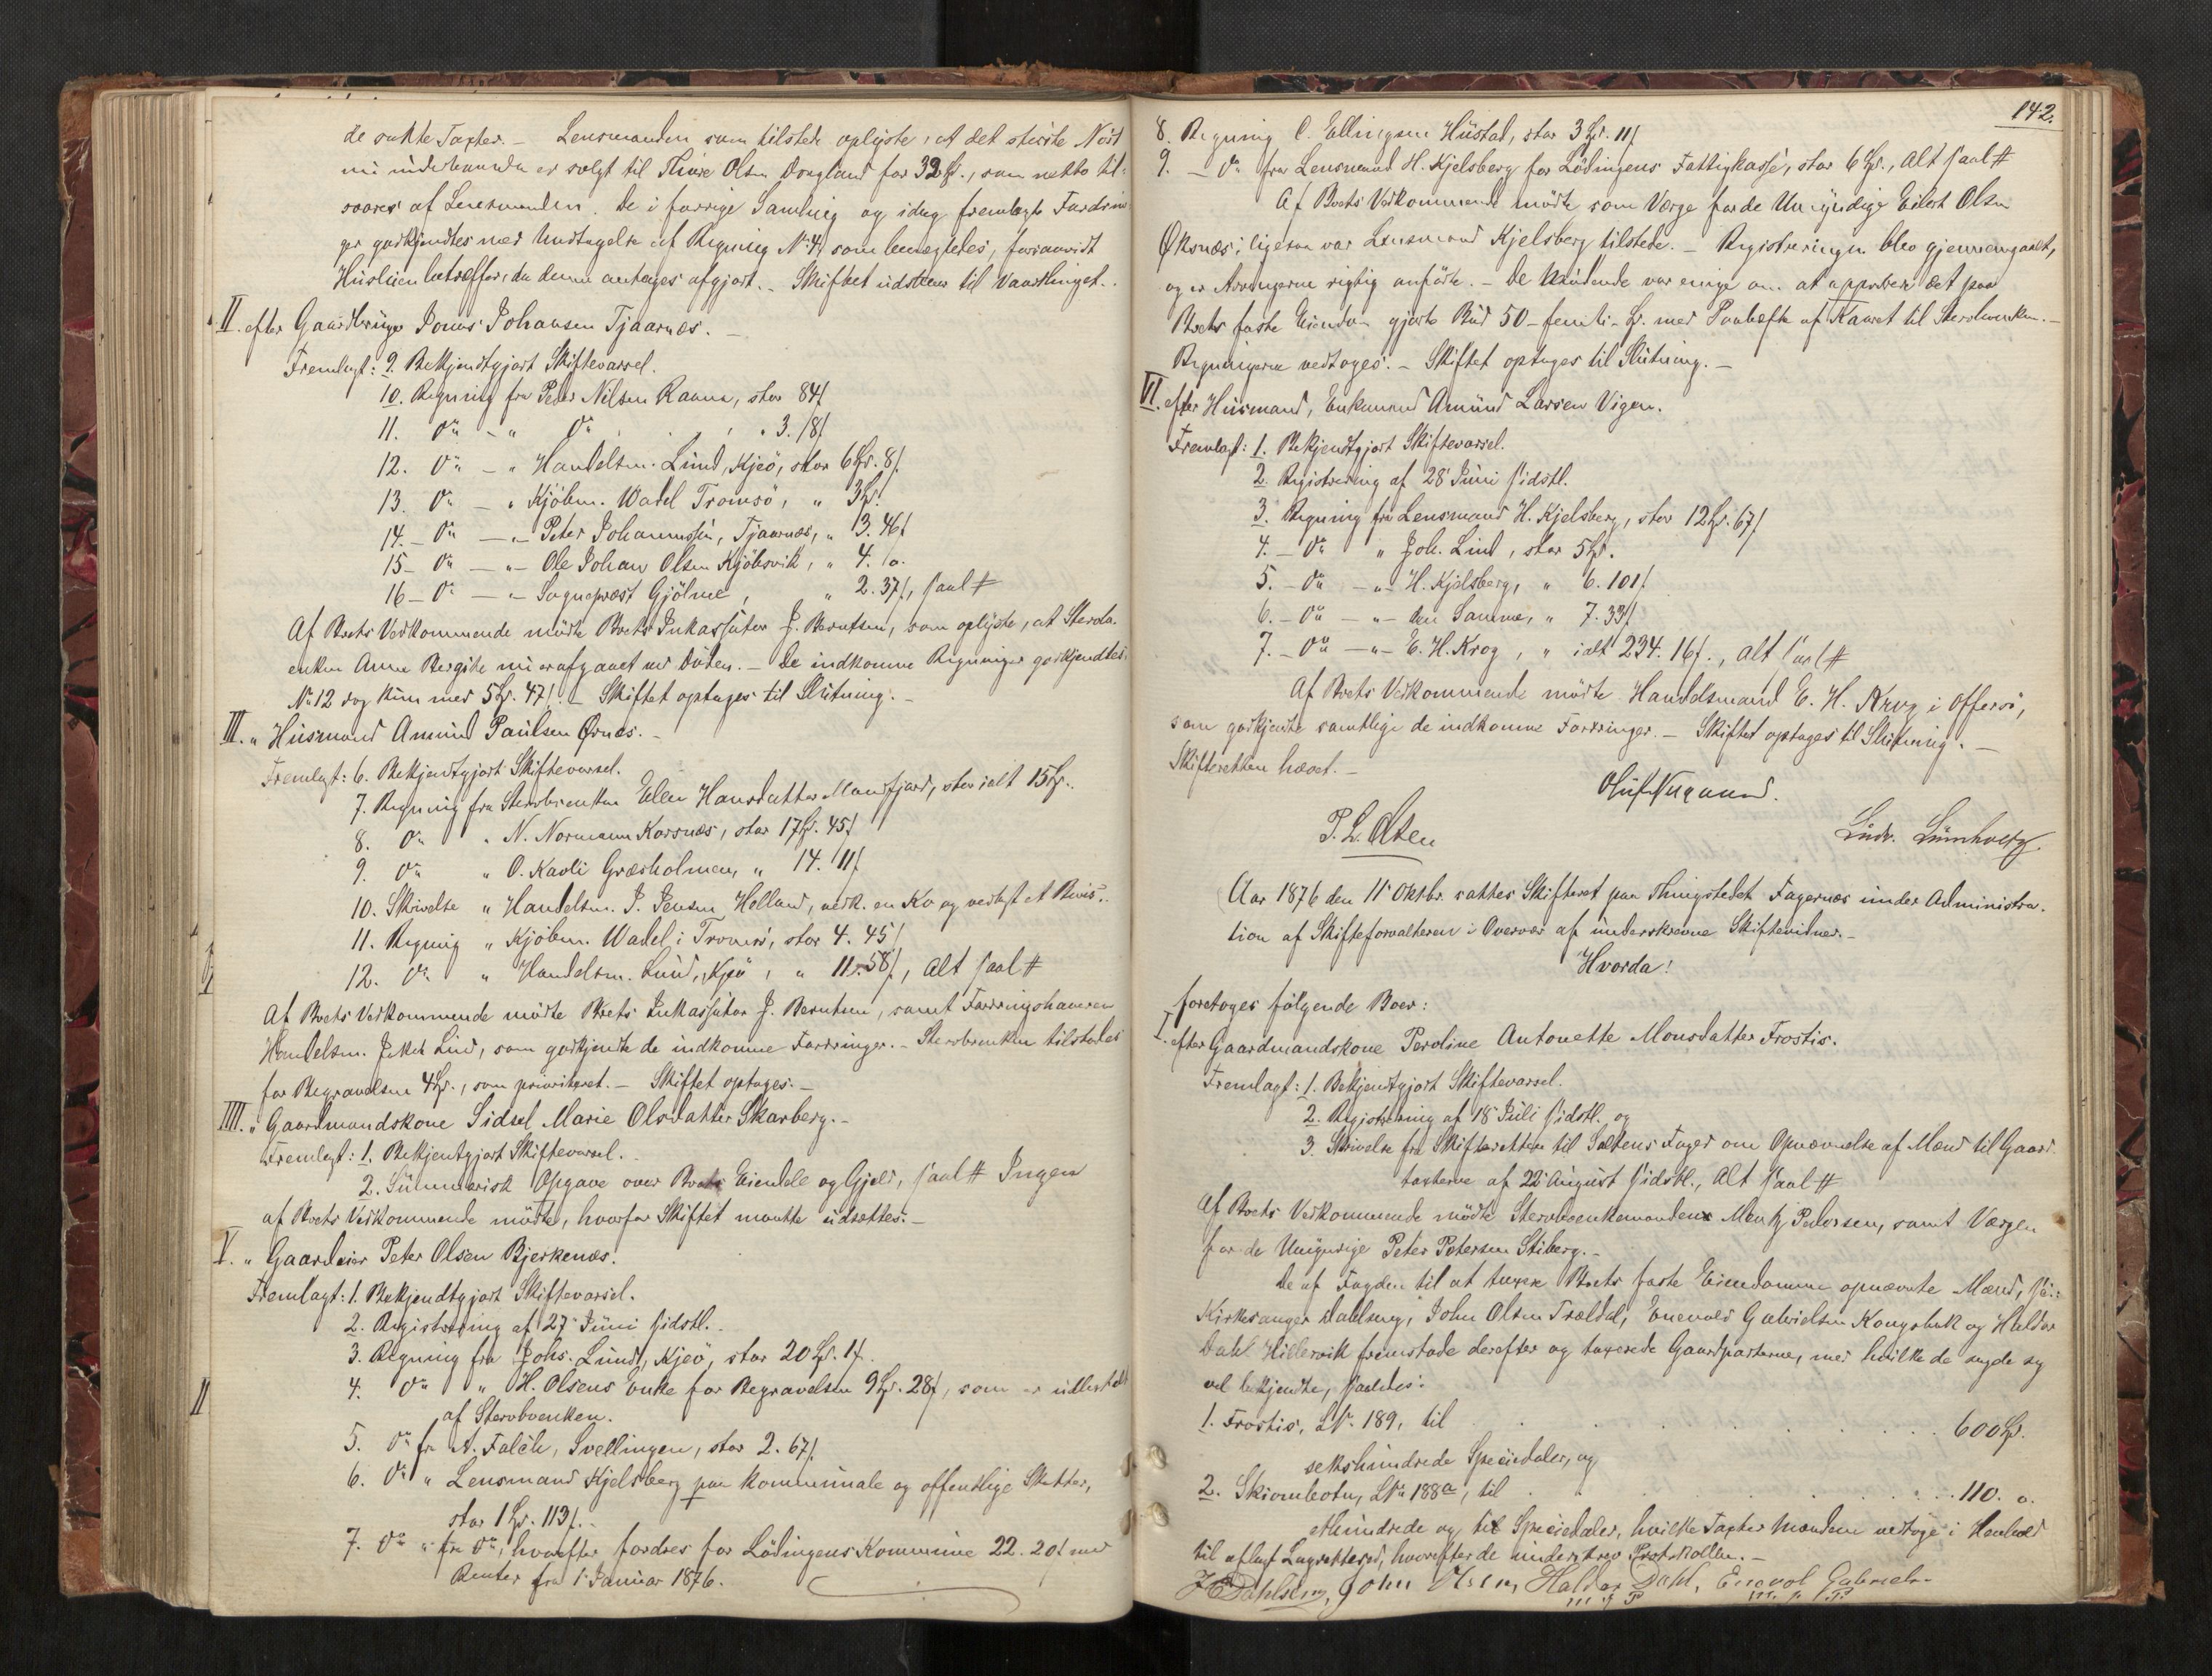 de satte Taxter. – Lensmanden som tilstede oplyste, at det største Not
nu underhaanden er solgt til Thore Olsen Dragland for 32 Spd., som netto til-
svares af Lensmanden. De i forrige Samling og idag fremlagte Fordrin
ger godkjendtes med Undtagelse af Regning No 4, som benegtedes, forsaavidt
Husleien betræffer, da denne antages afgjort. – Skiftet udstaar til Vaarthinget.
II. efter Gaardbruger Jonas Johansen Tjaarnæs. –
Fremlagt: 9. Bekjendtgjort Skiftevarsel.
10. Regning fra Peder Nilsen Ranna, stor 84 ß
11. Do - " Do . . . 3. 18 ß
12. Do - " Handelsm. Lund, Kjeö, stor 6 Spd. 8 ß
13. Do - " Kjöbm. Wadel Tromsö, " 3 Spd.
14. - Do - " - Peter Johannessen, Tjaarnæs, " 3. 46 ß
15 - Do - " - Ole Johan Olsen Kjöbsvik, " 4. o.
16 - Do - " - Sognepræst Gjölme, " 2. 37 ß, saal #
Af Boets Vedkommende mödte Boets Inkassator J. Berntsen, som oplyste, at Stervbo-
enken Anne Bergite nu er afgaaet ved Döden. – De indkomne Regninger godkjendtes
No 12 dog kun med 5 Spd. 47 ß. – Skiftet optages til Slutning. –
III. " Husmand Amund Paulsen Ørnæs. –
Fremlagt: 6. Bekjendtgjort Skiftevarsel.
7. Regning fra Stervboenken Ellen Hansdatter Manfjord, stor ialt 15 Spd.
8. Do " N. Normann Korsnæs, stor 17 Spd. 45 ß
9. Do " O. Kavli Græsholmen, " 14. 11 ß
10. Skrivelse " Handelsm. J. Jensen Holland, vedk. en Ko og vedlagt et Bevis.
11. Regning " Kjöbm. Wadel i Tromsö, stor 4. 45 ß
12. Do " Handelsm. Lund, Kjeö, " 11. 58 ß, Alt saal #
Af Boets Vedkommende mödte Boets Inkassator J. Berntsen, samt Fordringshaveren
Handelsm. Lind, som godkjendte de indkomne Fordringer. – Stervboenken tilstodes
for Begravelsen 4 Spd., som prioriteret. – Skiftet optages. –
IIII. " Gaardmandskone Sidsel Marie Olsdatter Skarberg. –
Fremlagt: 1. Bekjentgjort Skiftevarsel.
2. Summarisk Opgave over Boets Eiendele og Gjeld, saal # Ingen
af Boets Vedkommende mödte, hvorfor Skiftet maatte udsættes. –
V. " Gaardeier Peter Olsen Bjerkenæs.
Fremlagt: 1. Bekjendtgjort Skiftevarsel.
2. Registrering af 27 Juni sidstl.
3. Regning fra Johs. Lund, Kjeö, stor 20 Spd. 1 ß.
4. Do " H. Olsens Enke for Begravelsen 9 Spd. 28 ß, som er udbetalt
af Stervboenken.
5. Do fra A. Falch, Svellingen, stor 2. 67 ß
6. Do " Lensmand Kjelsberg paa kommunale og offentlige Skatter,
stor 1 Spd. 113 ß. –
7. Do " fra Do, hvorefter fordres for Lödingens Kommune 22. 20 ß med
Renter fra 1 Januar 1876.
142.
8. Regning C. Ellingsen Hustad, stor 3 Spd. 11 ß
9. - Do fra Lensmand H. Kjelsberg for Lödingens Fattigkasse, stor 6 Spd., Alt saal #
Af Boets Vedkommende mödte som Værge for de Umyndige Eilert Olsen
Øksnæs; ligesaa var Lensmand Kjelsberg tilstede. – Registreringen blev gjennemgaaet,
og er Arvingerne rigtig anförte. – De Mödende var enige om at approbere det paa
Boets faste Eiendom gjorte Bud 50 – femti – Spd. med Paahefte af Kauret til Stervboenken. –
Regningerne vedtoges. – Skiftet optages til Slutning. –
VI. efter Husmand, Enkemand Amund Larsen Vigen.
Fremlagt: 1. Bekjendtgjort Skiftevarsel.
2. Registrering af 28 Juni sidstl.
3. Regning fra Lensmand H. Kjelsberg, stor 12 Spd. 67 ß
4. - Do " Joh. Lind, stor 5 Spd.
5. - Do - " - H. Kjelsberg, " 6. 101 ß
6. - Do - " - den Samme, " 7. 33 ß
7. - Do - " - E. H. Krog, " ialt 234. 16 ß., alt saal #
Af Boets Vedkommende mödte Handelsmand E. H. Krog i Offersö,
som godkjendte samtlige de indkomne Fordringer. – Skiftet optages til Slutning. –
Skifteretten hævet. –
P. L. Olsen
Ludv. Lumholtz
Aar 1876 den 11 Oktbr. sattes Skifteret paa Thingstedet Fagernæs under Administra-
tion af Skifteforvalteren i Overvær af underskrevne Skiftevidner. –
Hvorda!
foretoges fölgende Boer:
I. efter Gaardmandskone Peroline Antonette Monsdatter Frostis.
Fremlagt: 1. Bekjendtgjort Skiftevarsel.
2. Registrering af 18 Juli sidstl. og
3. Skrivelse fra Skifteretten til Saltens Foged om Opnævnelse af Mænd til Gaard
taxterne af 22 August sidstl., Alt saal #
Af Boets Vedkommende mödte Stervboenkemanden Mentz Pedersen, samt Værgen
for de Umyndige Peter Petersen Stiberg. –
De af Fogden til at taxere Boets faste Eiendomme opnævnte Mænd,
Kirkesanger Dahlseng, John Olsen Trældal, Enevold Gabrielsen Kongsbak og Haldor
Dahl Hiellervik fremstode derefter og taxerede Gaardparterne, med hvilke de sagde sig
vel bekjendte, saaledes:
1. Frostis, LNo 189, til . . . . . . 600 Spd.
sekshundrede Speciedaler, og
2. Skiombotn, LNo 188a, til . . . . . 110. o.
ethundrede og ti Speciedaler, hvilke Taxter Mændene vedtoge i Henhold
til aflagt Lagrettesed, hvorefter de underskrev Protokollen. –
Dahlseng, John Olsen, Haldor Dahl, Enevol Gabriels
m. p. P m. p. P.